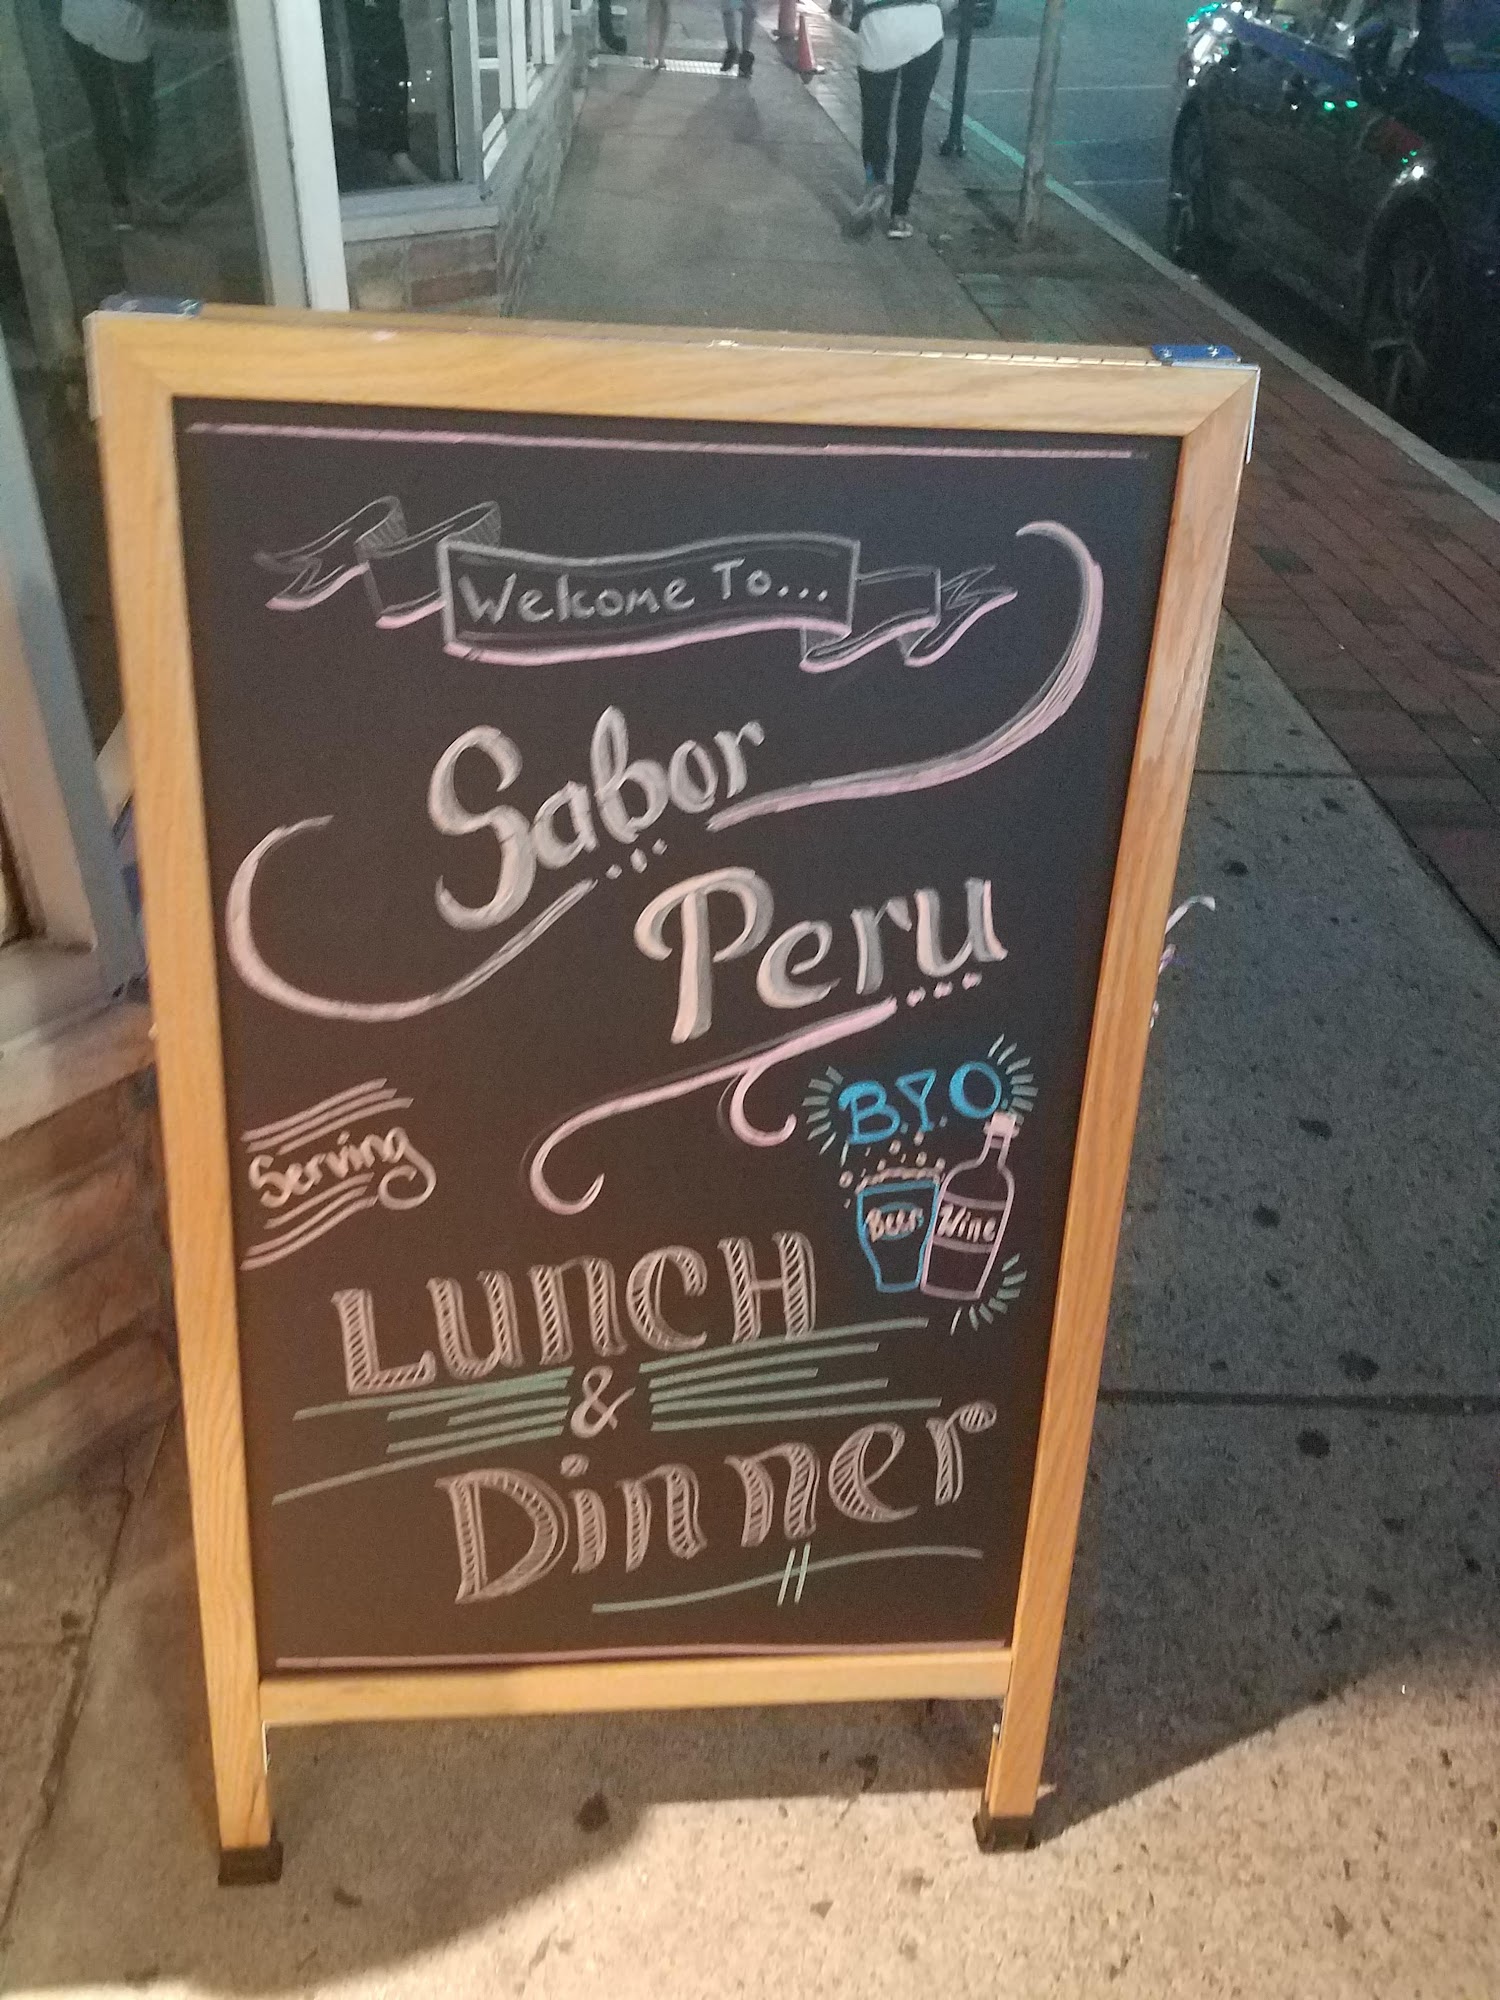 Welcome To...
Sabor
Peru
B.Y.O.
Serving
Beer Wine
Lunch
&
Dinner